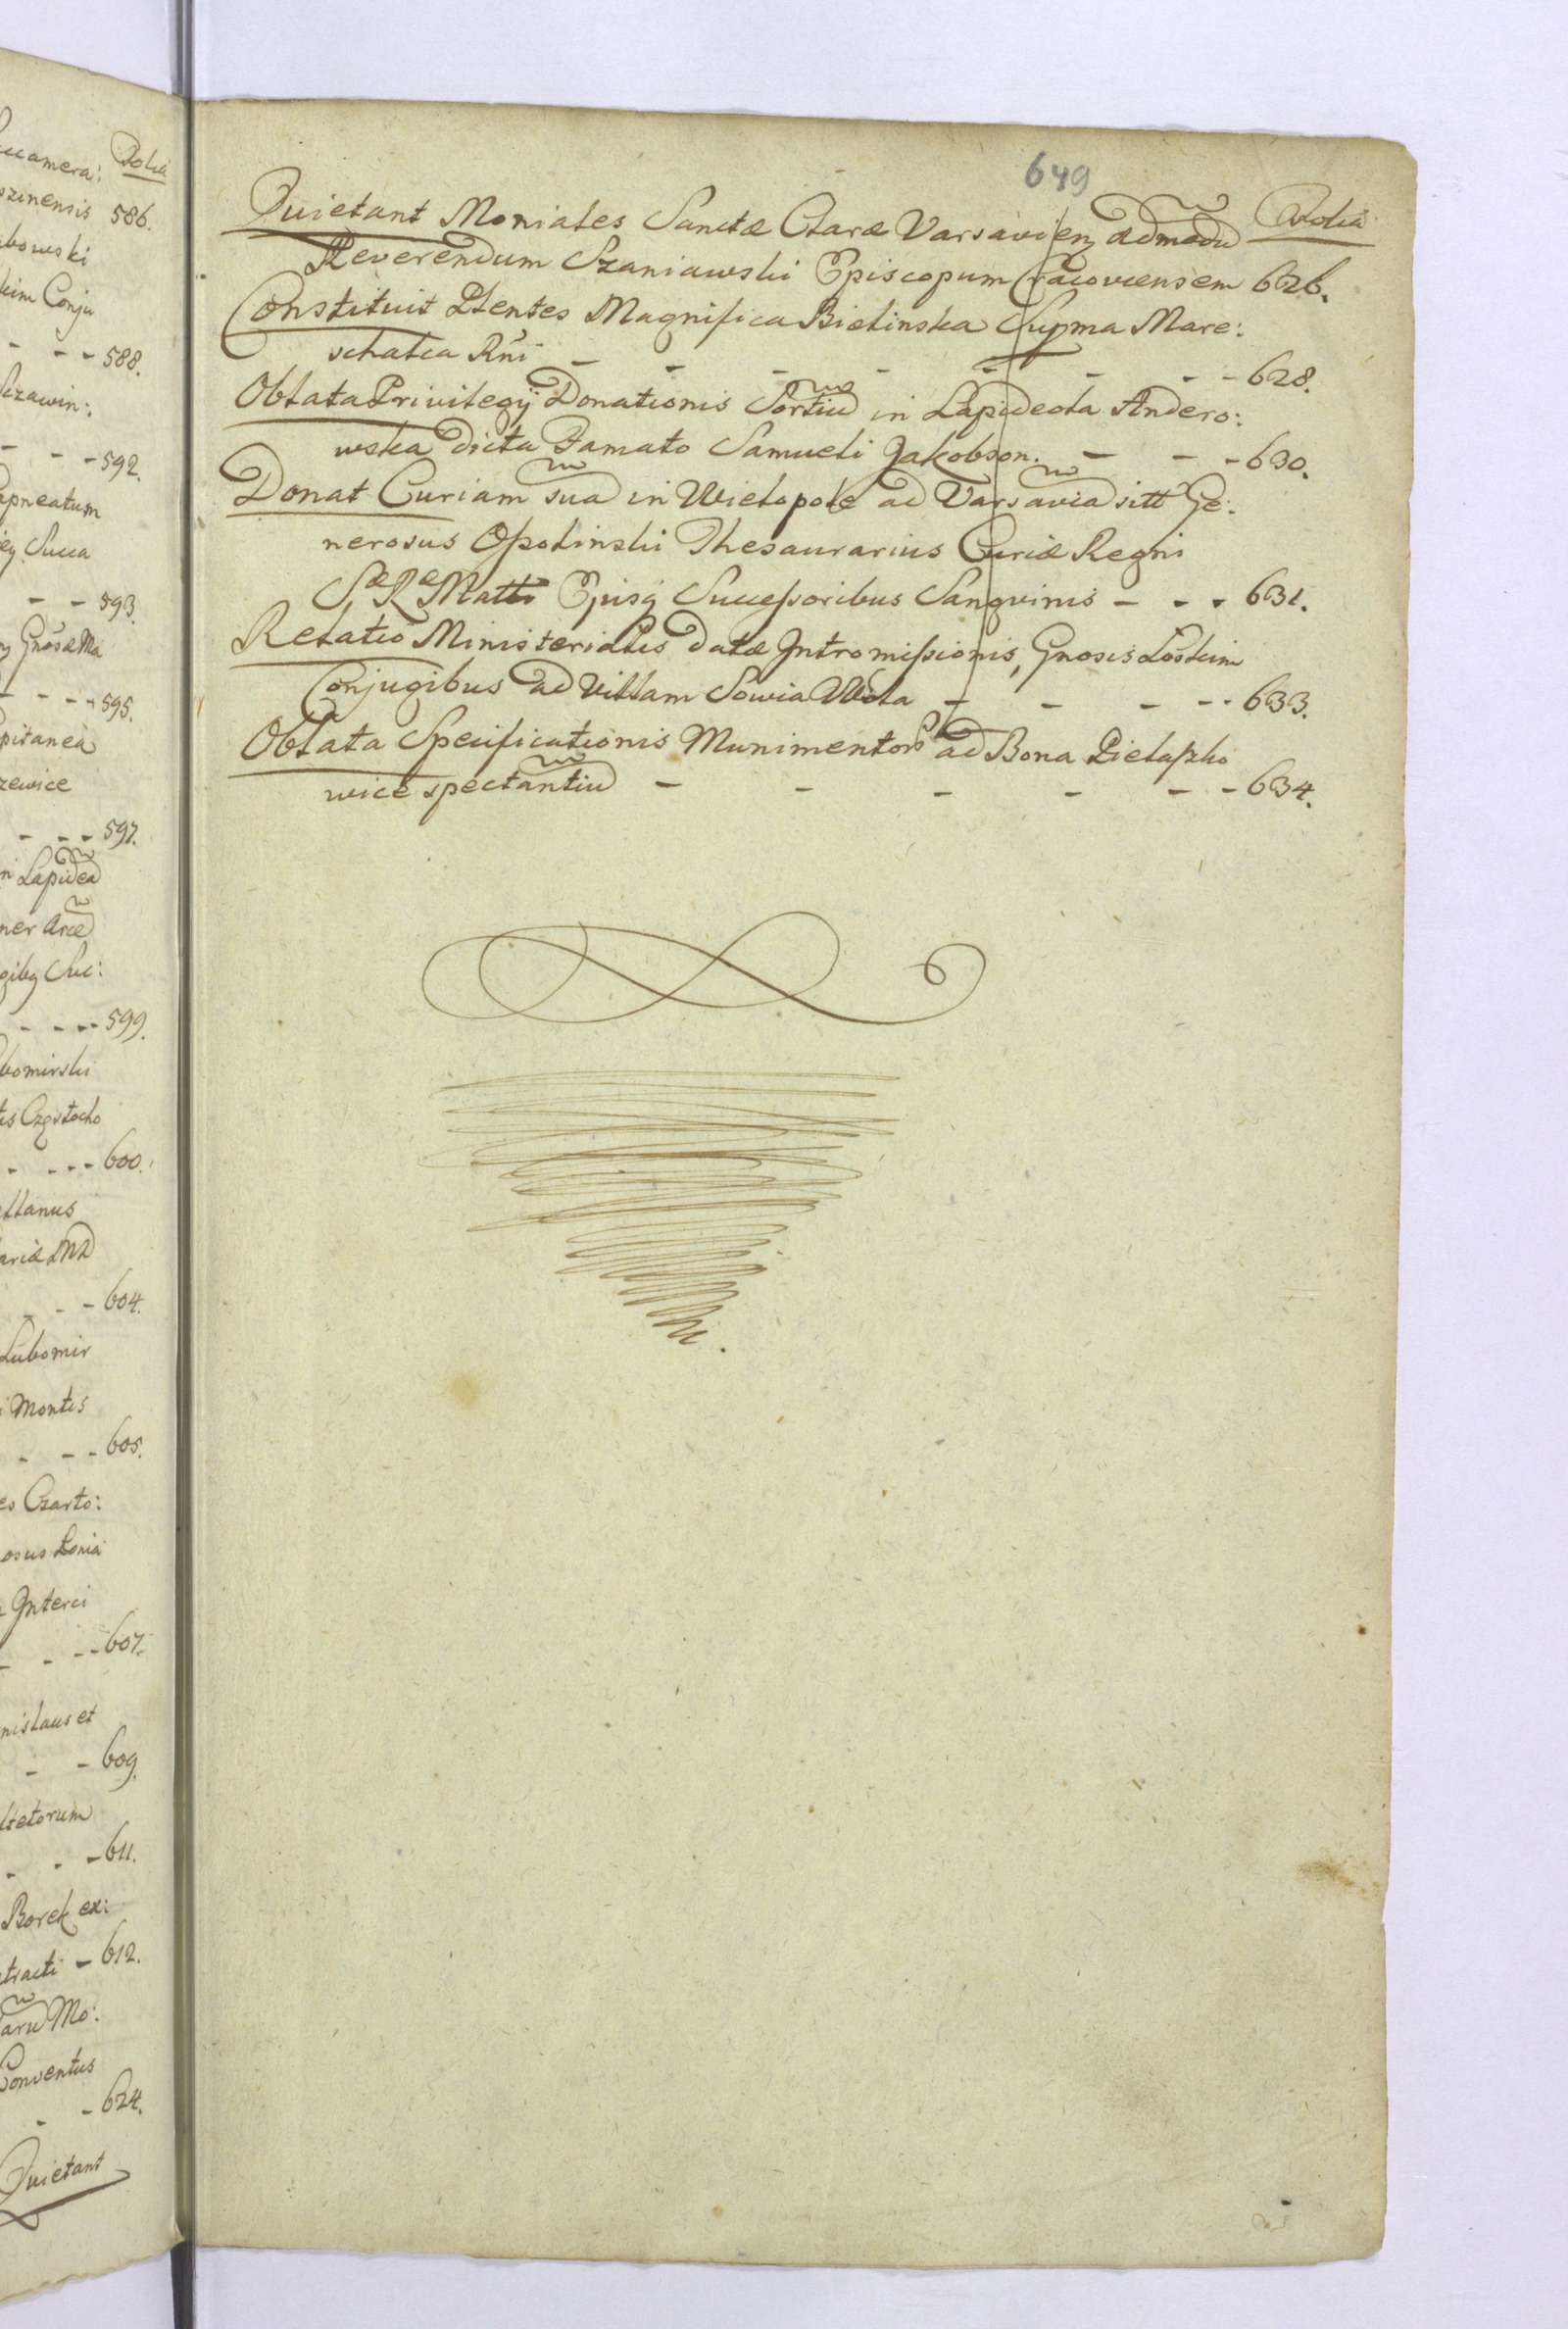 649
Quietant Moniales Sanctæ Claræ Varsavien admodu Folia
Reverendum Szaniawski Episcopum Cracoviensem 626.
Constituit Plentes Magnifica Bielinska Supma Mare:
schalca Rni - - - - - - - - 628.
Oblata Privilegij Donationis Sortiu in Lapideola Andero:
wska dicta Famato Samueli Jakobson. - - - 630.
Donat Curiam sua in Wielopole ad Varsavia sitt Ge:
nerosus Opolinski Thesaurarius Curiæ Regni
S R Matti EPisq Successoribus Sangvinis - - - 631.
Relatio Ministerialis datæ Intromissionis, Gnosis Loskim
Conjugibus ad Villam Sowia Wola - - - - - 633.
Oblata Specificationis Munimentor ad Bona Pielaszko
wice spectantiu - - - - - - 634.
ucamera: Folia
szinensis 586.
bowski
kim Conju
- - - 588.
Szawin:
- - - 592.
apneatum
Succa
- - 593.
Gnosæ Ma
- - - - 595.
pitanea
zewice
- - - 597.
n Lapidea
ner Arce
gibq Suc:
- - - - 599.
bomirski
tis Częstocho
- - - - 600.
llanus
ariæ MD
- - - 604.
Lubomir
i Montis
- - - 605.
es Czarto:
osus Lonia
Interci
- - - - 607.
nislaus et
- - 609.
ltetorum
- - - 611.
Borek ex:
tracti - 612.
aru Mo:
Conventus
- - 624.
Quietant